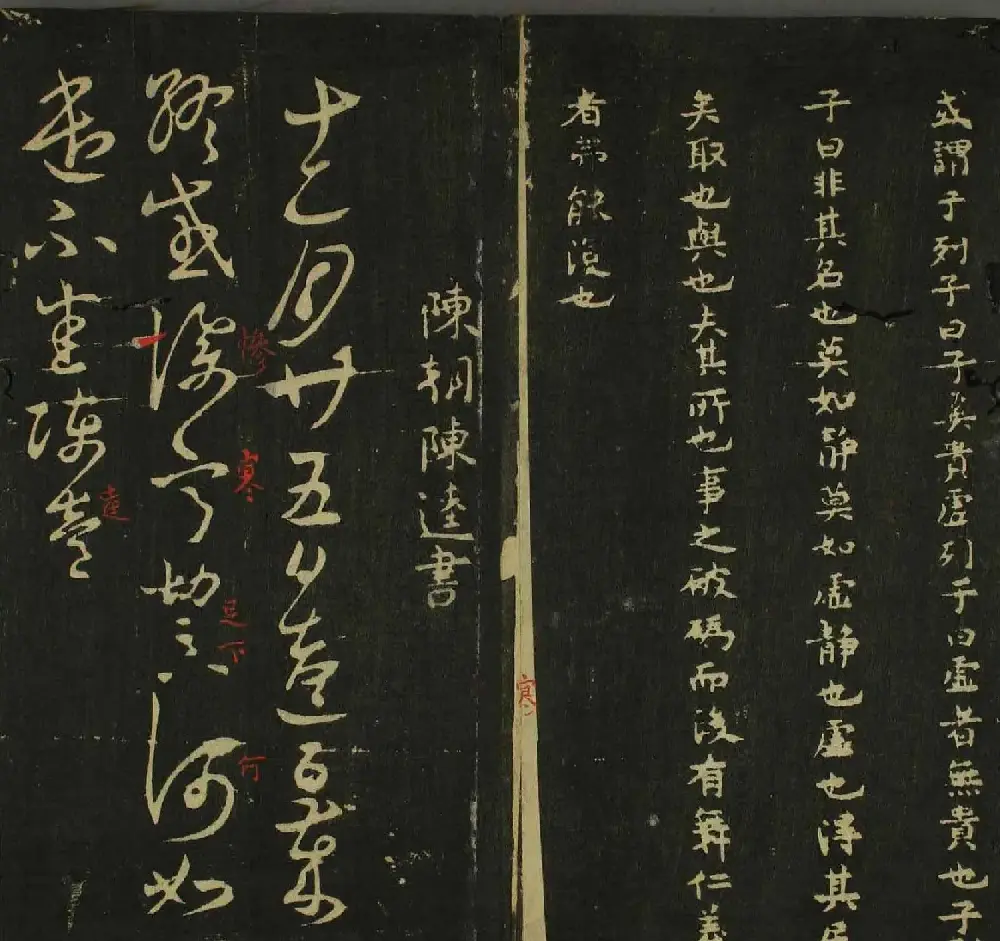 或謂子列子曰子奚貴虛列子曰虛者無貴也子
子曰非其名也莫如靜莫如虛靜也虛也得其居
矣取也與也失其所也事之破而後有舞仁義
者弗能復也
陳朝陳逵書
十二月廿五日逵
終感慘寒切足下何如
慘
寒
足下
何
不陳逵
逵
寒